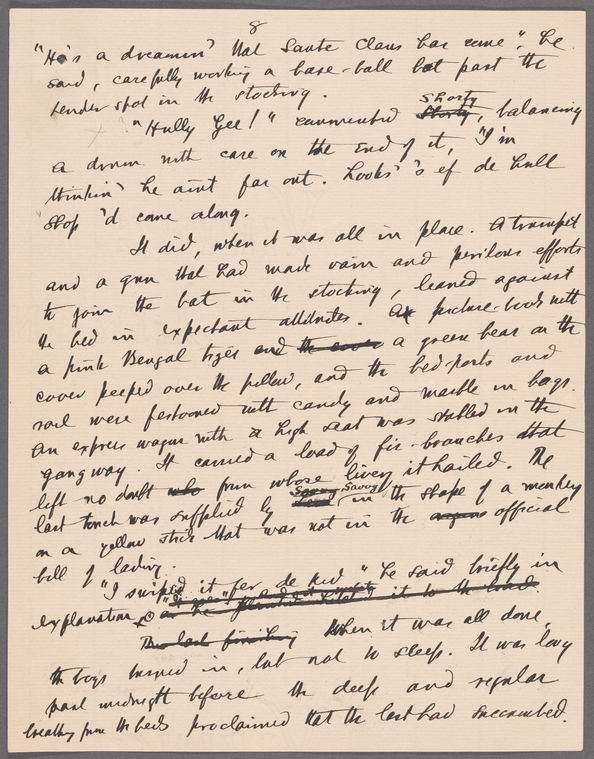 8
"He's a dreamin' that Santa Claus has come", he
said, carefully working a base-ball bat past the
tender spot in the stocking.
Shorty
"Hully Gee!" commented Shorty, balancing
a drum with care on the end of it, "I'm
thinkin' he aint far out. Looks's ef de hull
shop 'd come along.
It did, when it was all in place. A trumpet
and a gun that had made vain and perilous efforts
to join the bat in the stocking, leaned against
the bed in expectant attitudes. A picture-book with
a pink Bengal tiger and the cover a green bear on the
cover peeped over the pillow, and the bed-posts and
rail were festooned with candy and marble in bags.
An express wagon with a high seat was stabled in the
gangway. It carried a load of fir-branches that
left no doubt who from whose livery it hailed. The
Savoy
last touch was supplied by in the shape of a monkey
on a yellow stick that was not in the official
bill of lading.
"I swiped it fer de kid" he said briefly in
explanation.
The last finishing When it was all done,
the boys turned in, but not to sleep. It was long
past midnight before the deep and regular
breathing from the beds proclaimed that the last had succumbed.